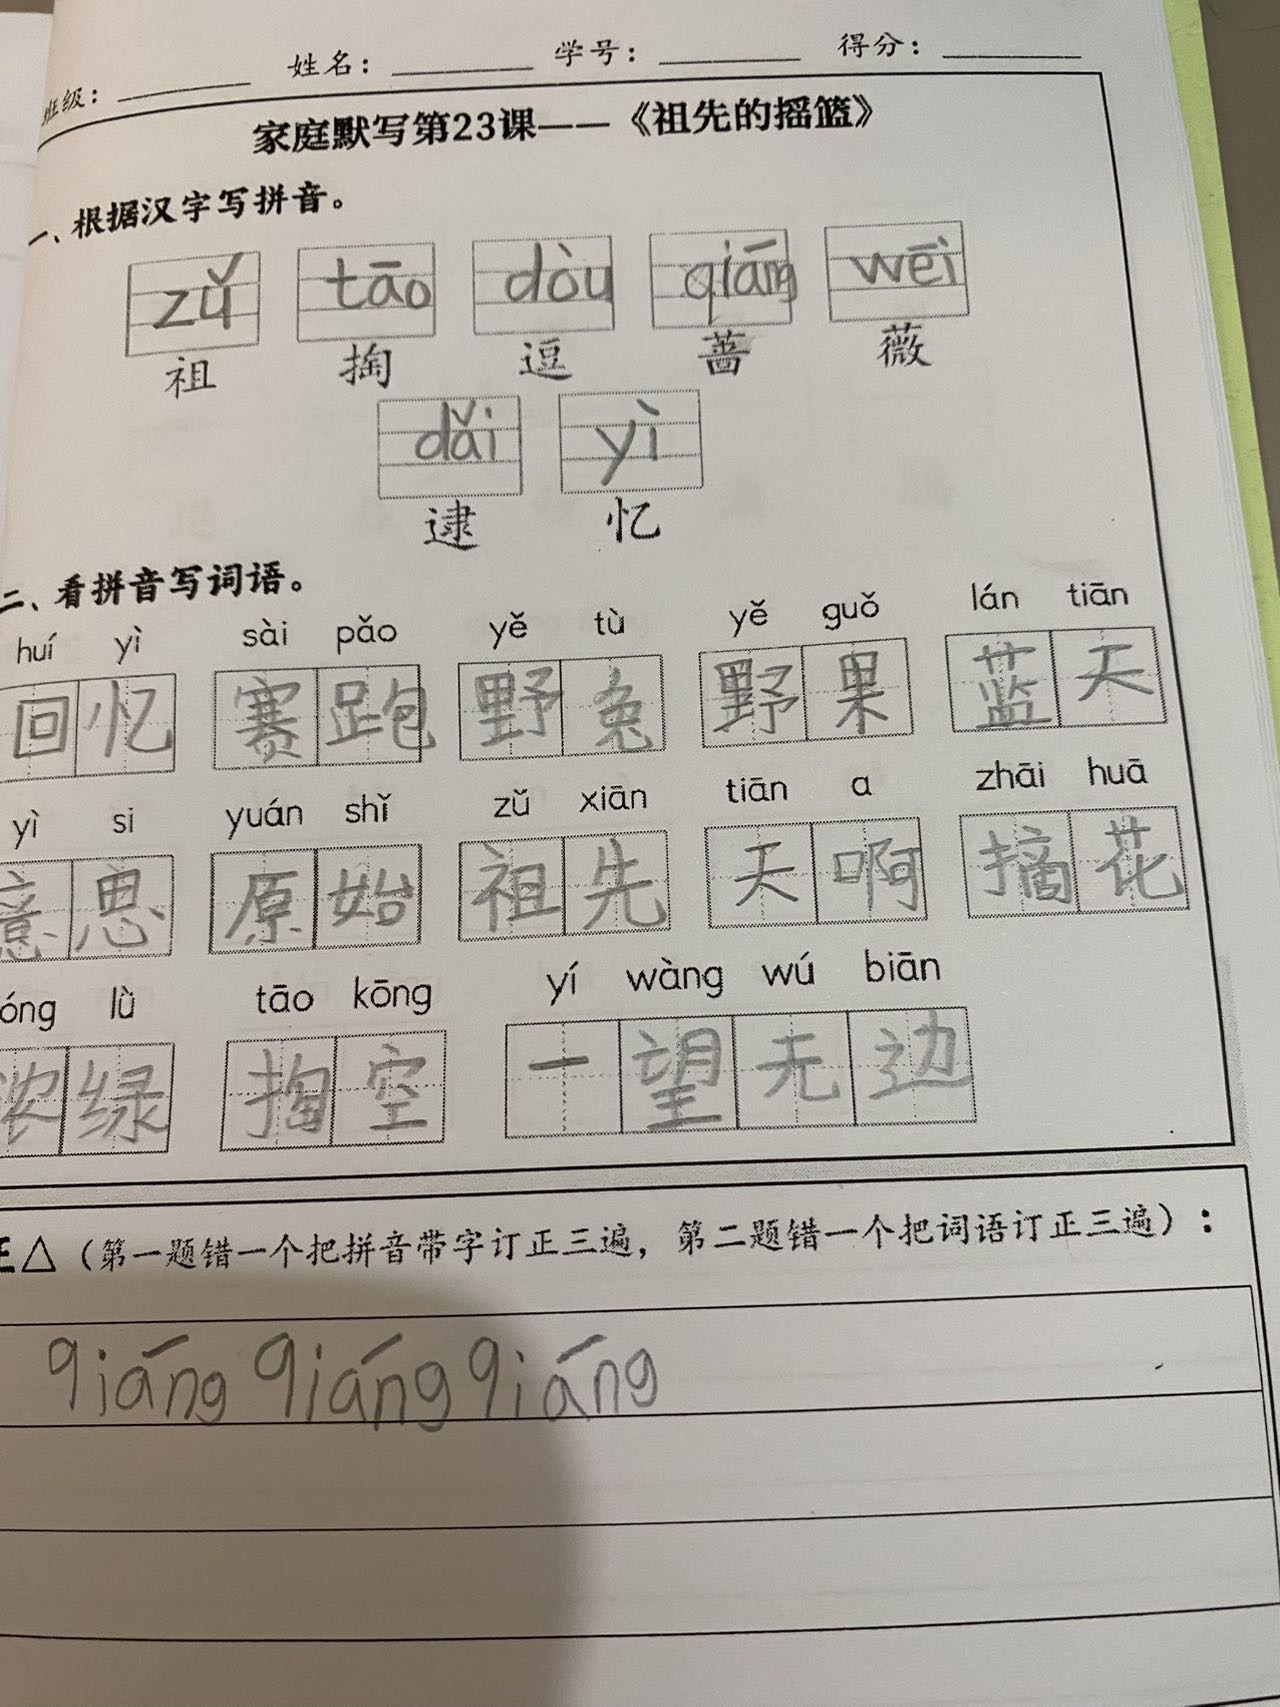 班级： 姓名： 学号： 得分：
家庭默写第23课——《祖先的摇篮》
一、根据汉字写拼音。
zǔ tāo dòu qiāng wēi
祖 掏 逗 蔷 薇
dǎi yì
逮 忆
二、看拼音写词语。
huí yì sài pǎo yě tù yě guǒ lán tiān
回忆 赛跑 野兔 野果 蓝天
yì si yuán shǐ zǔ xiān tiān a zhāi huā
意思 原始 祖先 天啊 摘花
óng lǜ tāo kōng yí wàng wú biān
浓绿 掏空 一望无边
正△（第一题错一个把拼音带字订正三遍，第二题错一个把词语订正三遍）：
qiāng qiāng qiāng